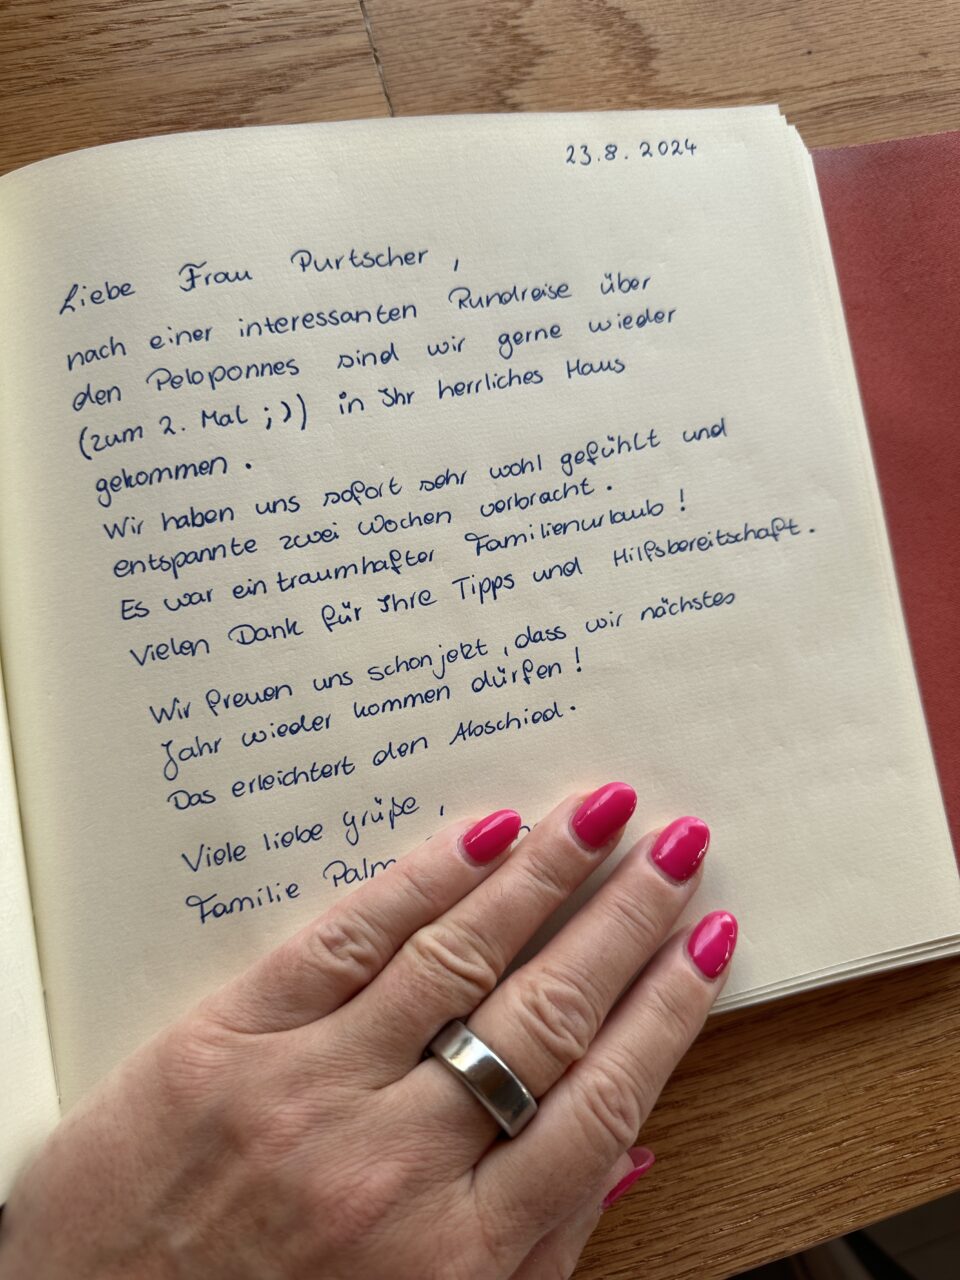 23.8.2024
Liebe Frau Purtscher,
nach einer interessanten Rundreise über
den Peloponnes sind wir gerne wieder
(zum 2. Mal ;)) in Ihr herrliches Haus
gekommen.
Wir haben uns sofort sehr wohl gefühlt und
entspannte zwei Wochen verbracht.
Es war ein traumhafter Familienurlaub!
Vielen Dank für Ihre Tipps und Hilfsbereitschaft.
Wir freuen uns schon jetzt, dass wir nächstes
Jahr wieder kommen dürfen!
Das erleichtert den Abschied.
Viele liebe Grüße,
Familie